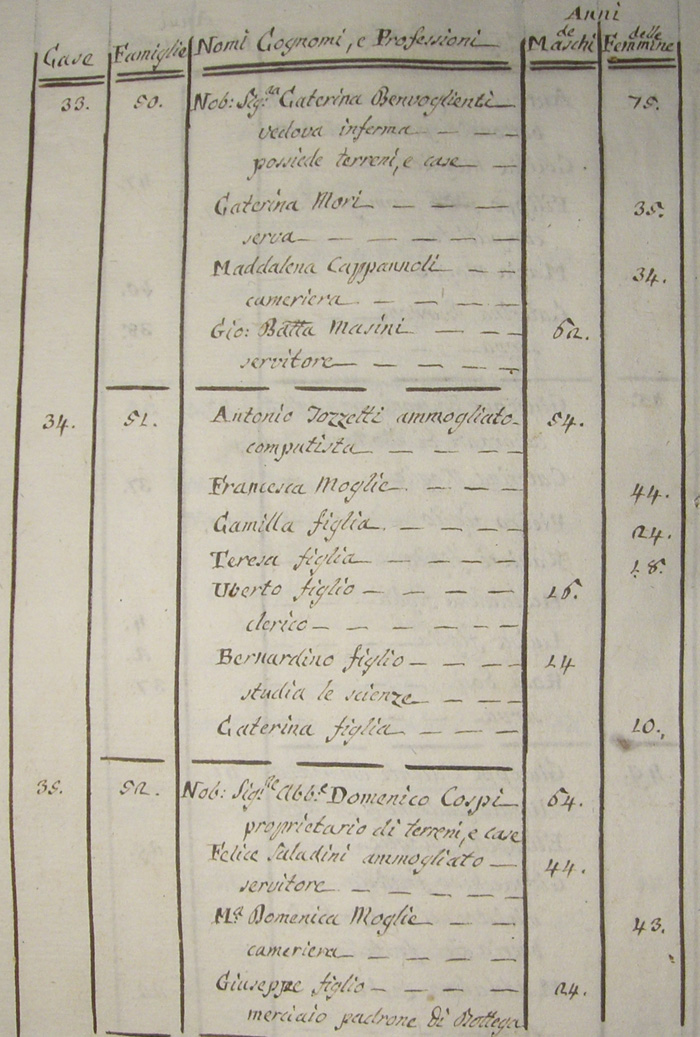 Anni
Case Famiglie Nomi Cognomi, e Professioni de Maschi delle Femmine
33. 50. Nob: Sig.ra Caterina Benvoglienti 75.
vedova inferma
possiede terreni, e case
Caterina Mori 35.
serva
Maddalena Cappannoli 34.
cameriera
Gio: Batta Masini 62.
servitore
34. 51. Antonio Tozzetti ammogliato 54.
computista
Francesca Moglie 44.
Camilla figlia 24.
Teresa figlia 18.
Uberto figlio 16.
clerico
Bernardino figlio 14
studia le scienze
Caterina figlia 10.
35. 52. Nob: Sig.re Abb.e Domenico Cospi 64.
proprietario di terreni, e case
Felice Saladini ammogliato 44.
servitore
M.a Domenica Moglie 43.
cameriera
Giuseppe figlio 24.
merciaio padrone di Bottega